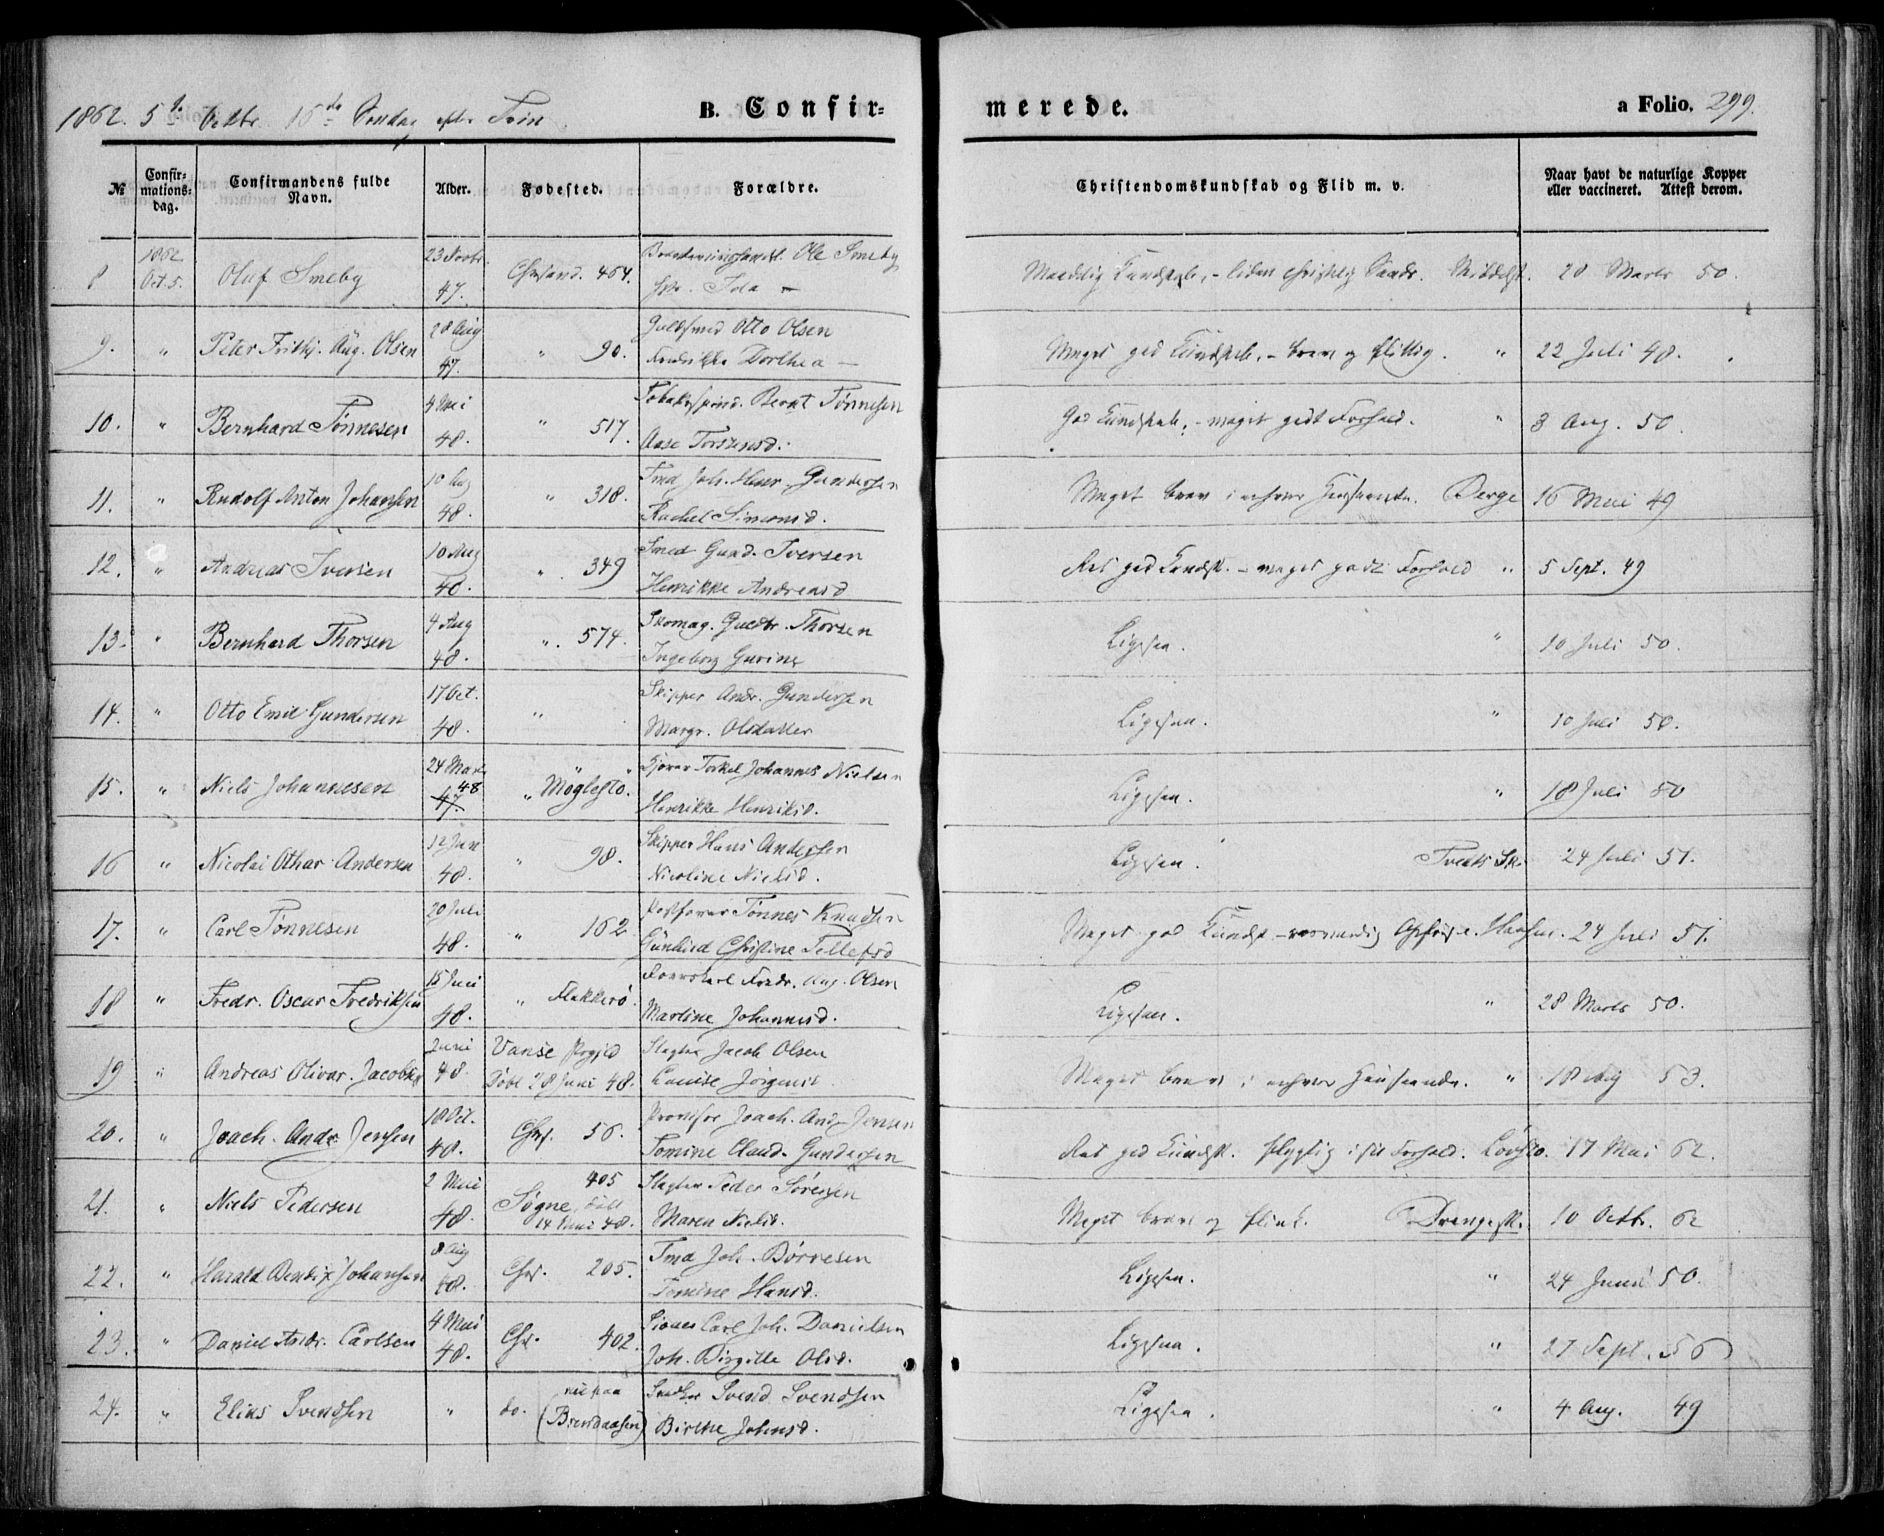 1862. 5te Octbr. 16de Søndag efter Trin.
B. Confirmerede.
a Folio. 299.
№
Confirmations-dag.
Confirmandens fulde Navn.
Alder.
Fødested.
Forældre.
Christendomskundskab og Flid m. v.
Naar havt de naturlige Kopper eller vaccineret. Attest derom.
8 1862 Oct. 5. Olaf Smeby 23 47. Chrsand. 464. Ole Smeby
Maadelig Kundskab, - liden christelig Sands. Middelsk. 28 Marts 50.
9. " Peter Frithj. Aug. Olsen 28 Aug 47. " 90. Guldsmed Otto Olsen
Fredrikke Dorthea —
Meget god Kundskab, - brav og flittig. " 22 Juli 48.
10. " Bernhard Tønnesen 4 Mai 48. " 517. Tobaksspind. Bernt Tønnesen
Aase
God Kundskab, - meget godt Forhold. " 8 Aug. 50.
11. " Rudolf Anton Johansen 10 Aug 48. " 318. Tmd Joh. Gundersen
Rachel Simonsd.
Meget brav i enhver Henseende. Berge 16 Mai 49
12. " Andreas Iversen 10 Aug 48. " 349 Smed Gund. Iversen
Henrikke Andreasd
Ret god Kundsk. - meget godt Forhold " 5 Sept. 49
13. " Bernhard Thorsen 4 Aug 48. " 574. Skomag. Guldbr. Thorsen
Ingeborg Gurine
Ligesaa. " 10 Juli 50.
14. " Otto Emil Gundersen 17 Oct. 48. " Skipper Andr. Gundersen
Margr. Olsdatter
Ligesaa. " 10 Juli 50.
15. " Niels Johannesen 24 Marts 47. 48 " Møglestø. Torkel Johannes Nielsen
Henrikke Henriksd.
Ligesaa. " 18 Juli 50
16 " Nicolai Othar Andersen 12 Jun 48. " 98. Skipper Hans Andersen
Nicoline Nielsd.
Ligesaa. Tvedts Sk. 24 Juli 51.
17. " Carl Tønnesen 20 Juli 48. " 162 Tønnes Knudsen
Gunhild Christine Tellefsd
Meget god Kundsk. - Opførsel. Hansen. 24 Juli 51.
18 " Fredr. Oscar Fredriksen 15 Juni 48. " Flekkerø. Fredr. Aug. Olsen
Martine Johannesd.
Ligesaa. " 28 Marts 50.
19 " Andreas Olivar Jacobsen Juni 48. Vanse Prgjld Døbt 28 Juni 48. Slagter Jacob Olsen
Louise Jørgensd.
Meget brav i enhver Henseende. " 18 53.
20. " Joach. Andr. Jensen 18 Oct. 48. Chrs. 56. Joach. And. Jensen
Tomine Claud. Gundersen
Ret god Kundsk. flygtig i sit Forhold. Løvsto. 17 Mai 62.
21. " Niels Pedersen 2 Mai 48. 405 Søgne, døbt 14 Juni 48. Slagter Peder Sørensen
Maren Nielsd.
Meget brav og flink. Drengesk. 10 Octbr. 62
22. " Harald Bendix Johansen 8 Aug 48. Chrs. 205. Tmd Joh. Børresen
Tomine Hansd.
Ligesaa. " 24 Juni 50.
23. " Daniel Andr. Carlsen 4 Mai 48. Chrs. 402. Carl Joh. Danielsen
Joh. Birgitte Olsd.
Ligesaa. " 27 Sept. 56
24. " Elias Svendsen " do. nu paa (Brændaasen) Snedker Svend Svendsen
Birthe Johnsd.
Ligesaa. " 4 Aug. 49